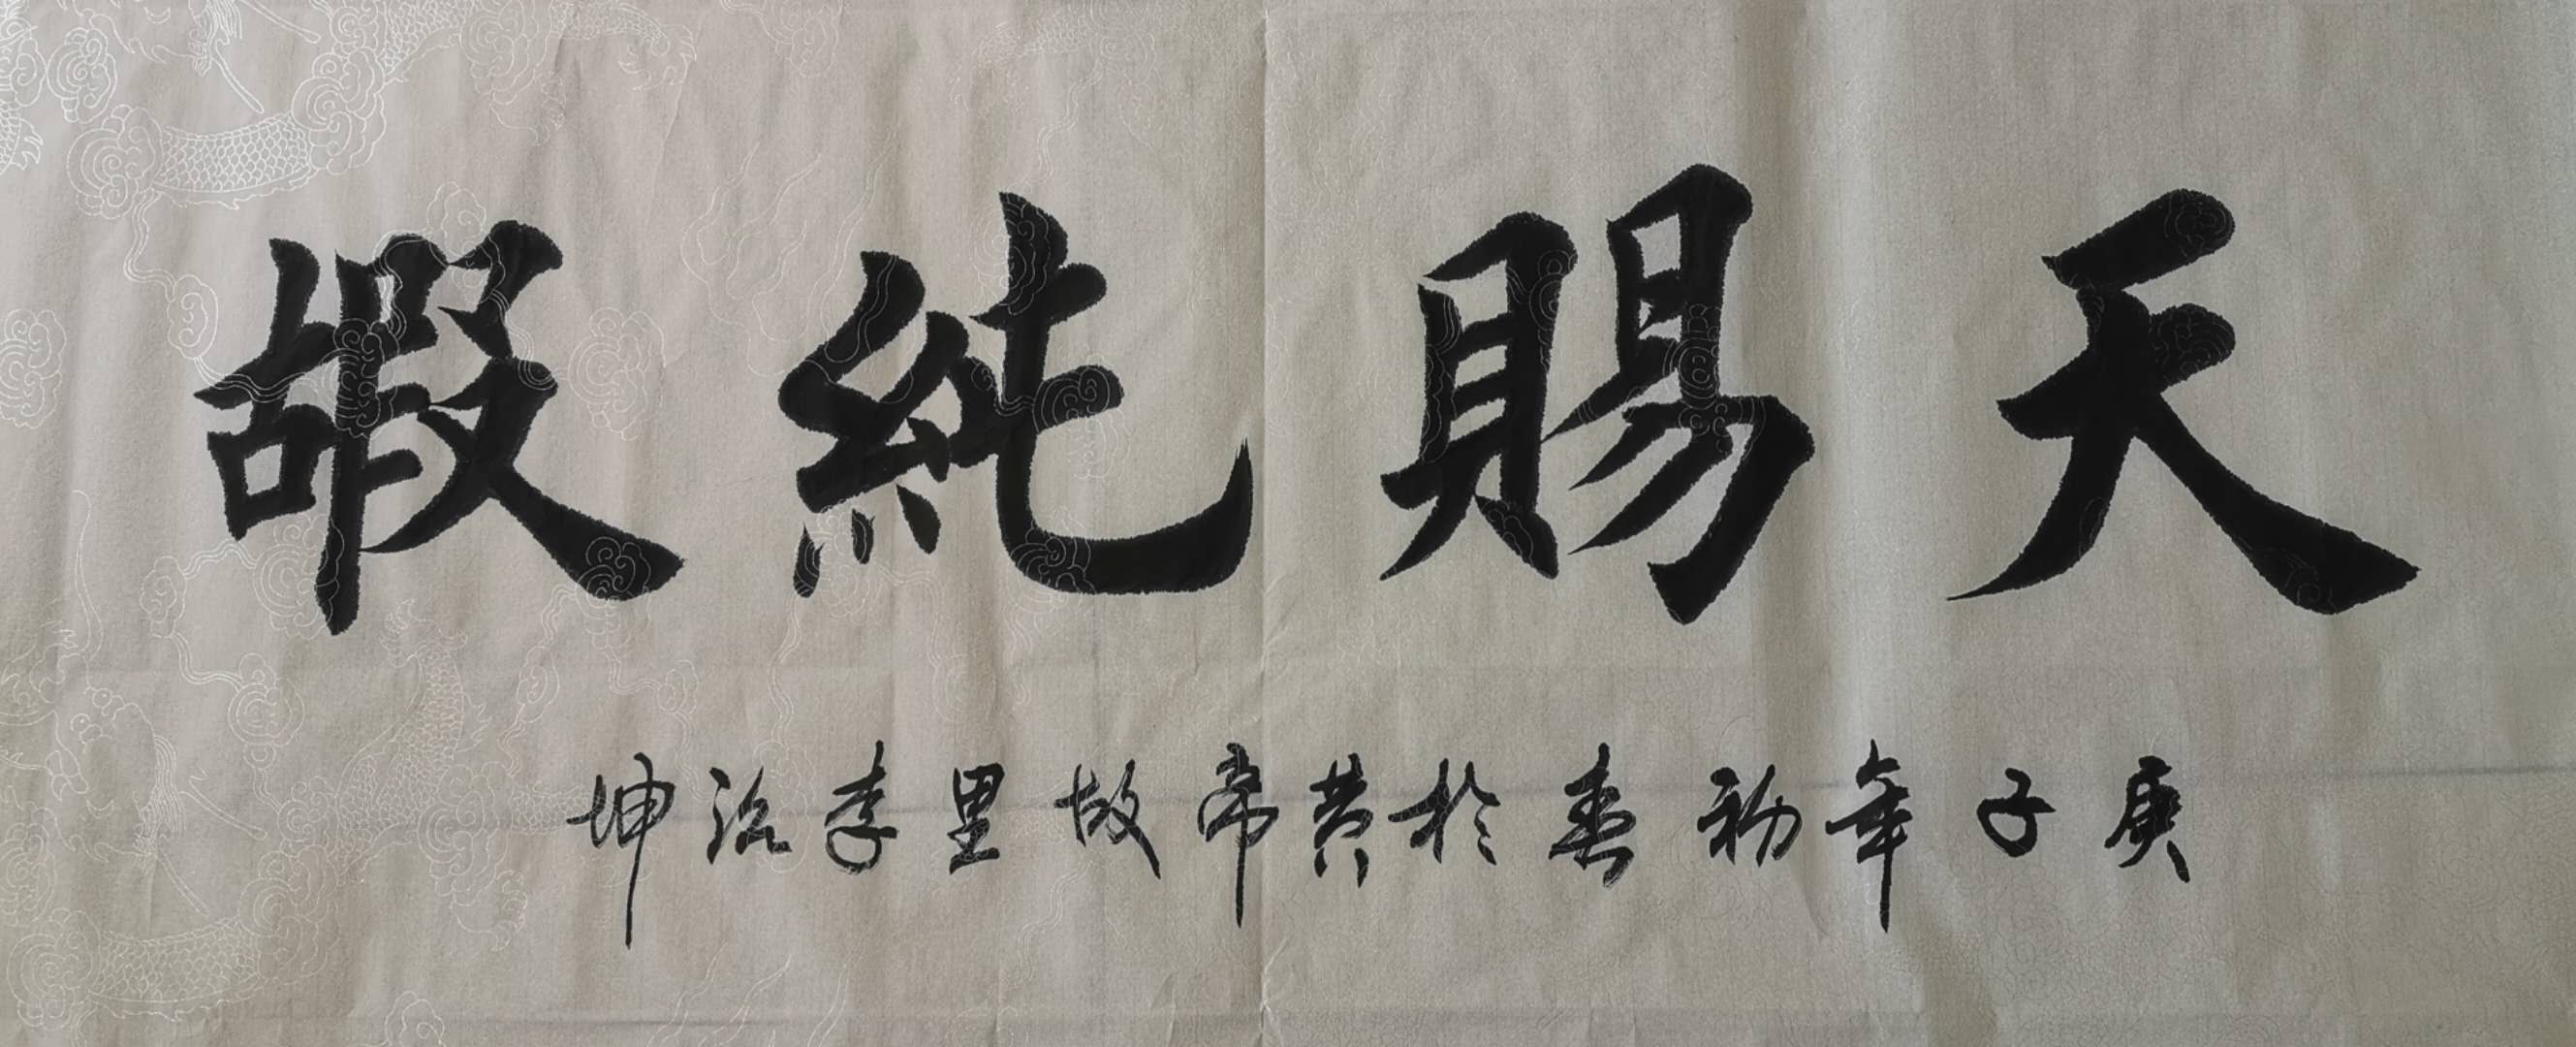 天賜純嘏
庚子年初春於黄帝故里李治坤